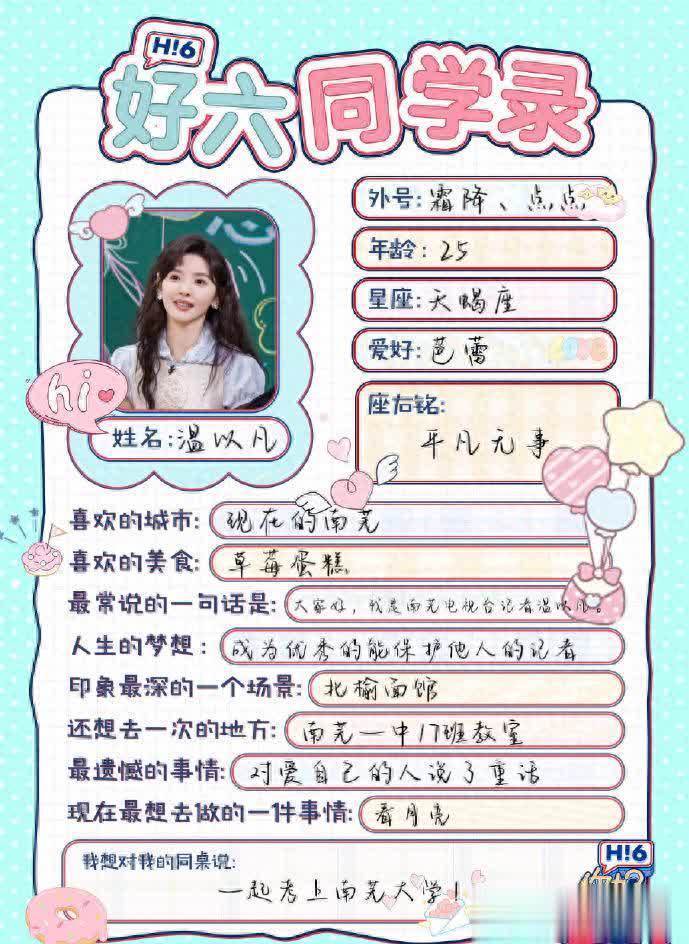 H!6
好六同学录
外号:霜降、点点
年龄:25
星座:天蝎座
爱好:芭蕾
座右铭:
平凡无事
hi
姓名:温以凡
喜欢的城市:现在的南芜
喜欢的美食:草莓蛋糕
最常说的一句话是:大家好，我是南芜电视台记者温以凡。
人生的梦想:成为优秀的能保护他人的记者
印象最深的一个场景:北榆面馆
还想去一次的地方:南芜一中17班教室
最遗憾的事情:对爱自己的人说了重话
现在最想去做的一件事情:看月亮
我想对我的同桌说:
一起考上南芜大学!
H!6